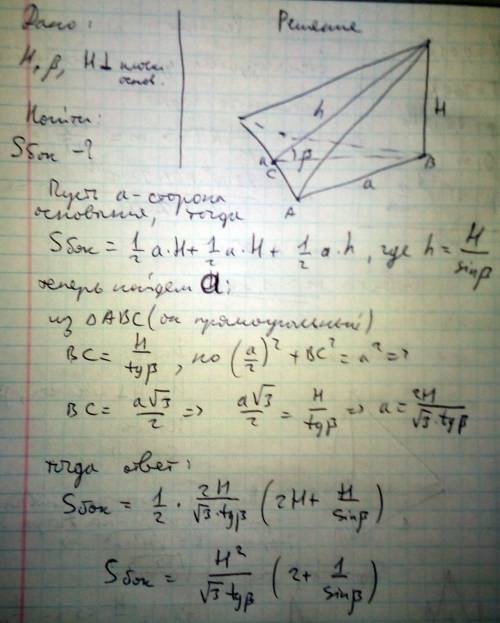 Дано:
Решение
H, β, H ⊥ плоск.
основ.
Найти:
Sбок - ?
h
H
β
a
C
B
a
A
Пусть a - сторона
основания, тогда
Sбок = 1/2 a·H + 1/2 a·H + 1/2 a·h, где h = H/sinβ
теперь найдем a:
из △ABC (он прямоугольный)
BC = H/tgβ, но (a/2)² + BC² = a² =>
BC = a√3/2 => a√3/2 = H/tgβ => a = 2H/√3·tgβ
тогда ответ:
Sбок = 1/2 · 2H/√3·tgβ (2H + H/sinβ)
Sбок = H²/√3·tgβ (2 + 1/sinβ)